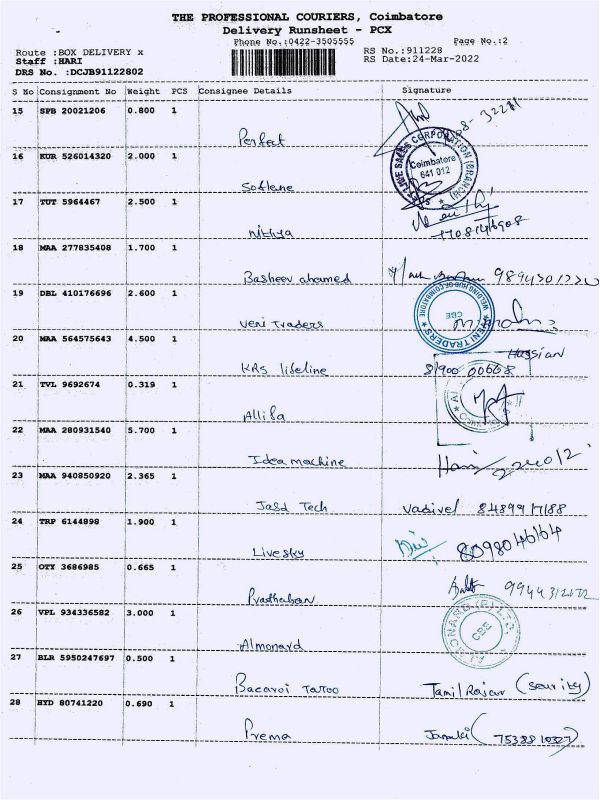 THE PROFESSIONAL COURIERS, Coimbatore
Delivery Runsheet - PCX
Phone No.:0422-3505555 Page No.:2
Route :BOX DELIVERY x RS No.:911228
Staff :HARI RS Date:24-Mar-2022
DRS No. :DCJB91122802
S No Consignment No Weight PCS Consignee Details Signature
15 SPB 20021206 0.800 1
Perfect
16 KUR 526014320 2.000 1
LIVE SALES CORPORATION (BRANCH)
Coimbatore
641 012
Softene
17 TUT 5964467 2.500 1
Nithya
18 MAA 277835408 1.700 1
Basheer ahamed
19 DBL 410176696 2.600 1
WELDING HUB OF COIMBATORE
CBE
VENI TRADERS
Veni Traders
20 MAA 564575643 4.500 1
Hassian
KRS lifeline
21 TVL 9692674 0.319 1
Allifa
22 MAA 280931540 5.700 1
Idea machine
23 MAA 940850920 2.365 1
Jasd Tech Vadivel
24 TRP 6144898 1.900 1
Livesky 8098046164
25 OTY 3686985 0.665 1
Prathaban
26 VPL 934336582 3.000 1
ALMONARD (P) LTD.
CBE
Almonard
27 BLR 5950247697 0.500 1
Bacaroi Taroo Tamil Rajan (security)
28 HYD 80741220 0.690 1
Prema Janaki (7538810327)